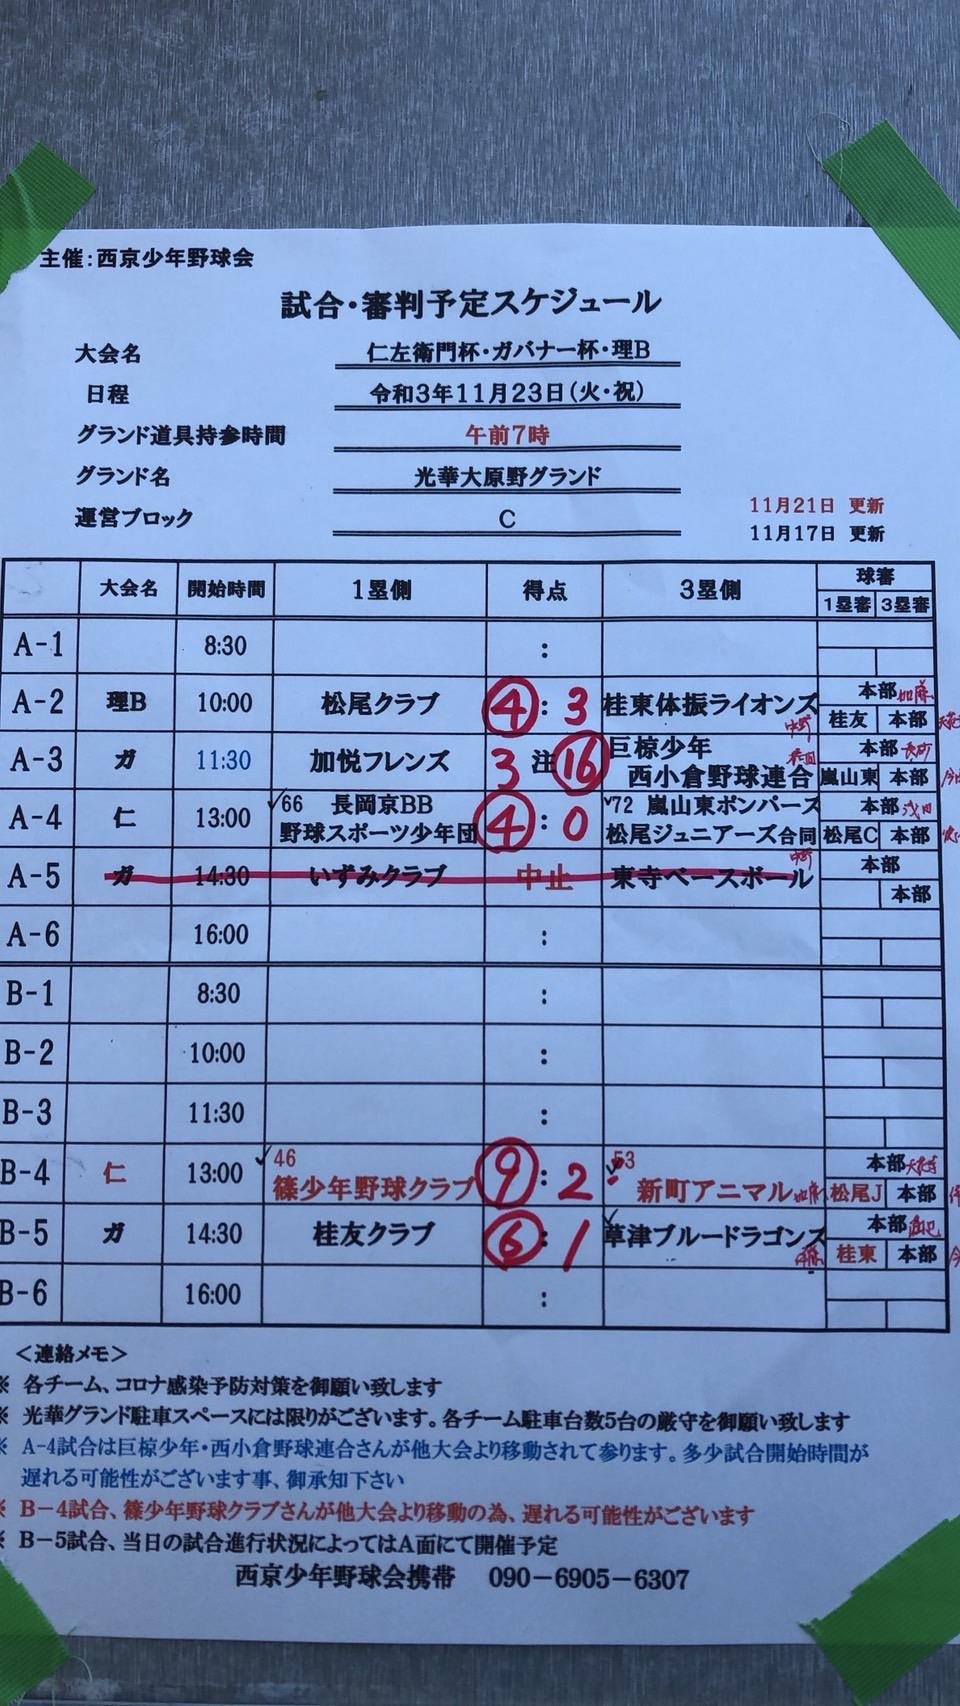 主催：西京少年野球会
試合・審判予定スケジュール
大会名 仁左衛門杯・ガバナー杯・理B
日程 令和3年11月23日(火・祝)
グランド道具持参時間 午前7時
グランド名 光華大原野グランド
運営ブロック C
11月21日 更新
11月17日 更新
大会名 開始時間 1塁側 得点 3塁側 球審
1塁審 3塁審
A-1 8:30 :
A-2 理B 10:00 松尾クラブ 4 : 3 桂東体振ライオンズ 本部
桂友 本部
A-3 ガ 11:30 加悦フレンズ 3 注 16 巨椋少年 本部
西小倉野球連合 嵐山東 本部
A-4 仁 13:00 66 長岡京BB 4 : 0 72 嵐山東ボンバーズ 本部
野球スポーツ少年団 松尾ジュニアーズ合同 松尾C 本部
A-5 ガ 14:30 いずみクラブ 中止 東寺ベースボール 本部
本部
A-6 16:00 :
B-1 8:30 :
B-2 10:00 :
B-3 11:30 :
B-4 仁 13:00 46 9 : 2 53 本部
篠少年野球クラブ 新町アニマル 松尾J 本部
B-5 ガ 14:30 桂友クラブ 6 : 1 草津ブルードラゴンズ 本部
桂東 本部
B-6 16:00 :
＜連絡メモ＞
※ 各チーム、コロナ感染予防対策を御願い致します
※ 光華グランド駐車スペースには限りがございます。各チーム駐車台数5台の厳守を御願い致します
※ A-4試合は巨椋少年・西小倉野球連合さんが他大会より移動されて参ります。多少試合開始時間が
遅れる可能性がございます事、御承知下さい
※ B－4試合、篠少年野球クラブさんが他大会より移動の為、遅れる可能性がございます
※ B－5試合、当日の試合進行状況によってはA面にて開催予定
西京少年野球会携帯 090－6905－6307